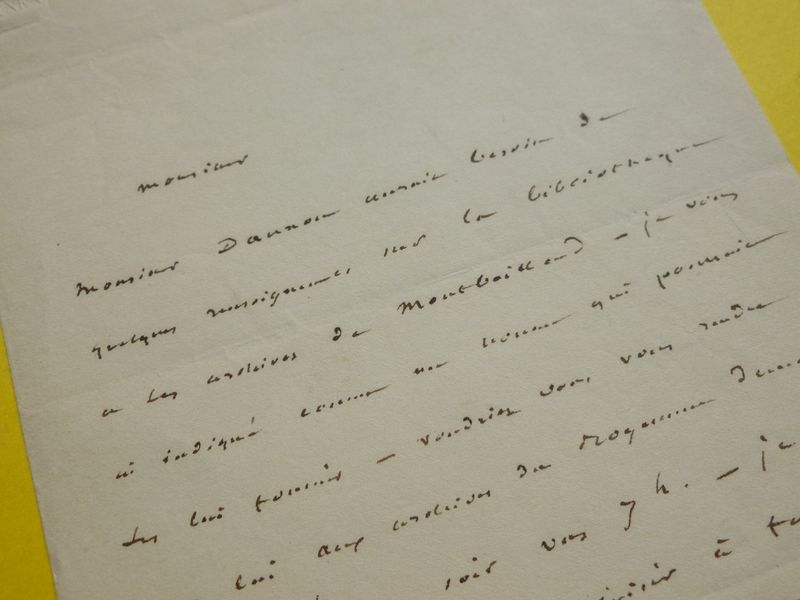 monsieur
monsieur Daunou aurait besoin de
quelques renseignemens sur la bibliotheque
a les archives de Montbeillard – je vous
ai indiqué comme un homme qui pourrait
les lui fournir – voudriez vous vous rendre
lui aux archives du Royaume
soir vers 7 h. – je
à